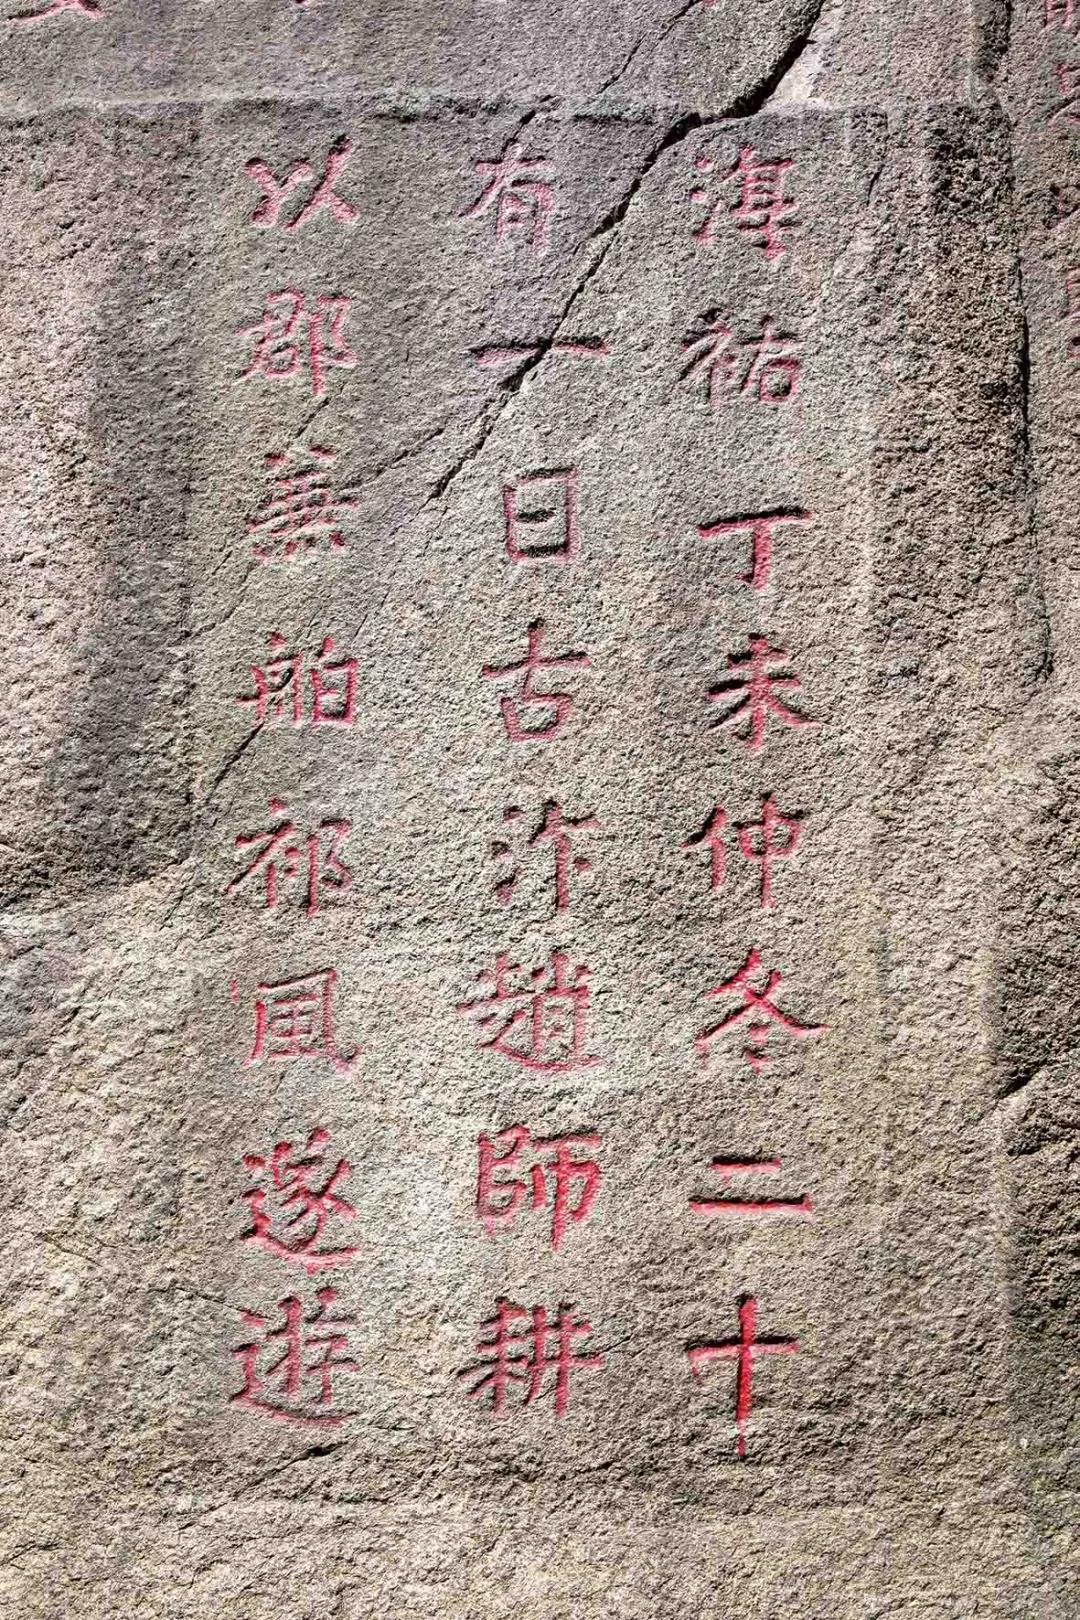 淳祐丁未仲冬二十
有一日古汴趙師耕
以郡兼舶祈風遂遊